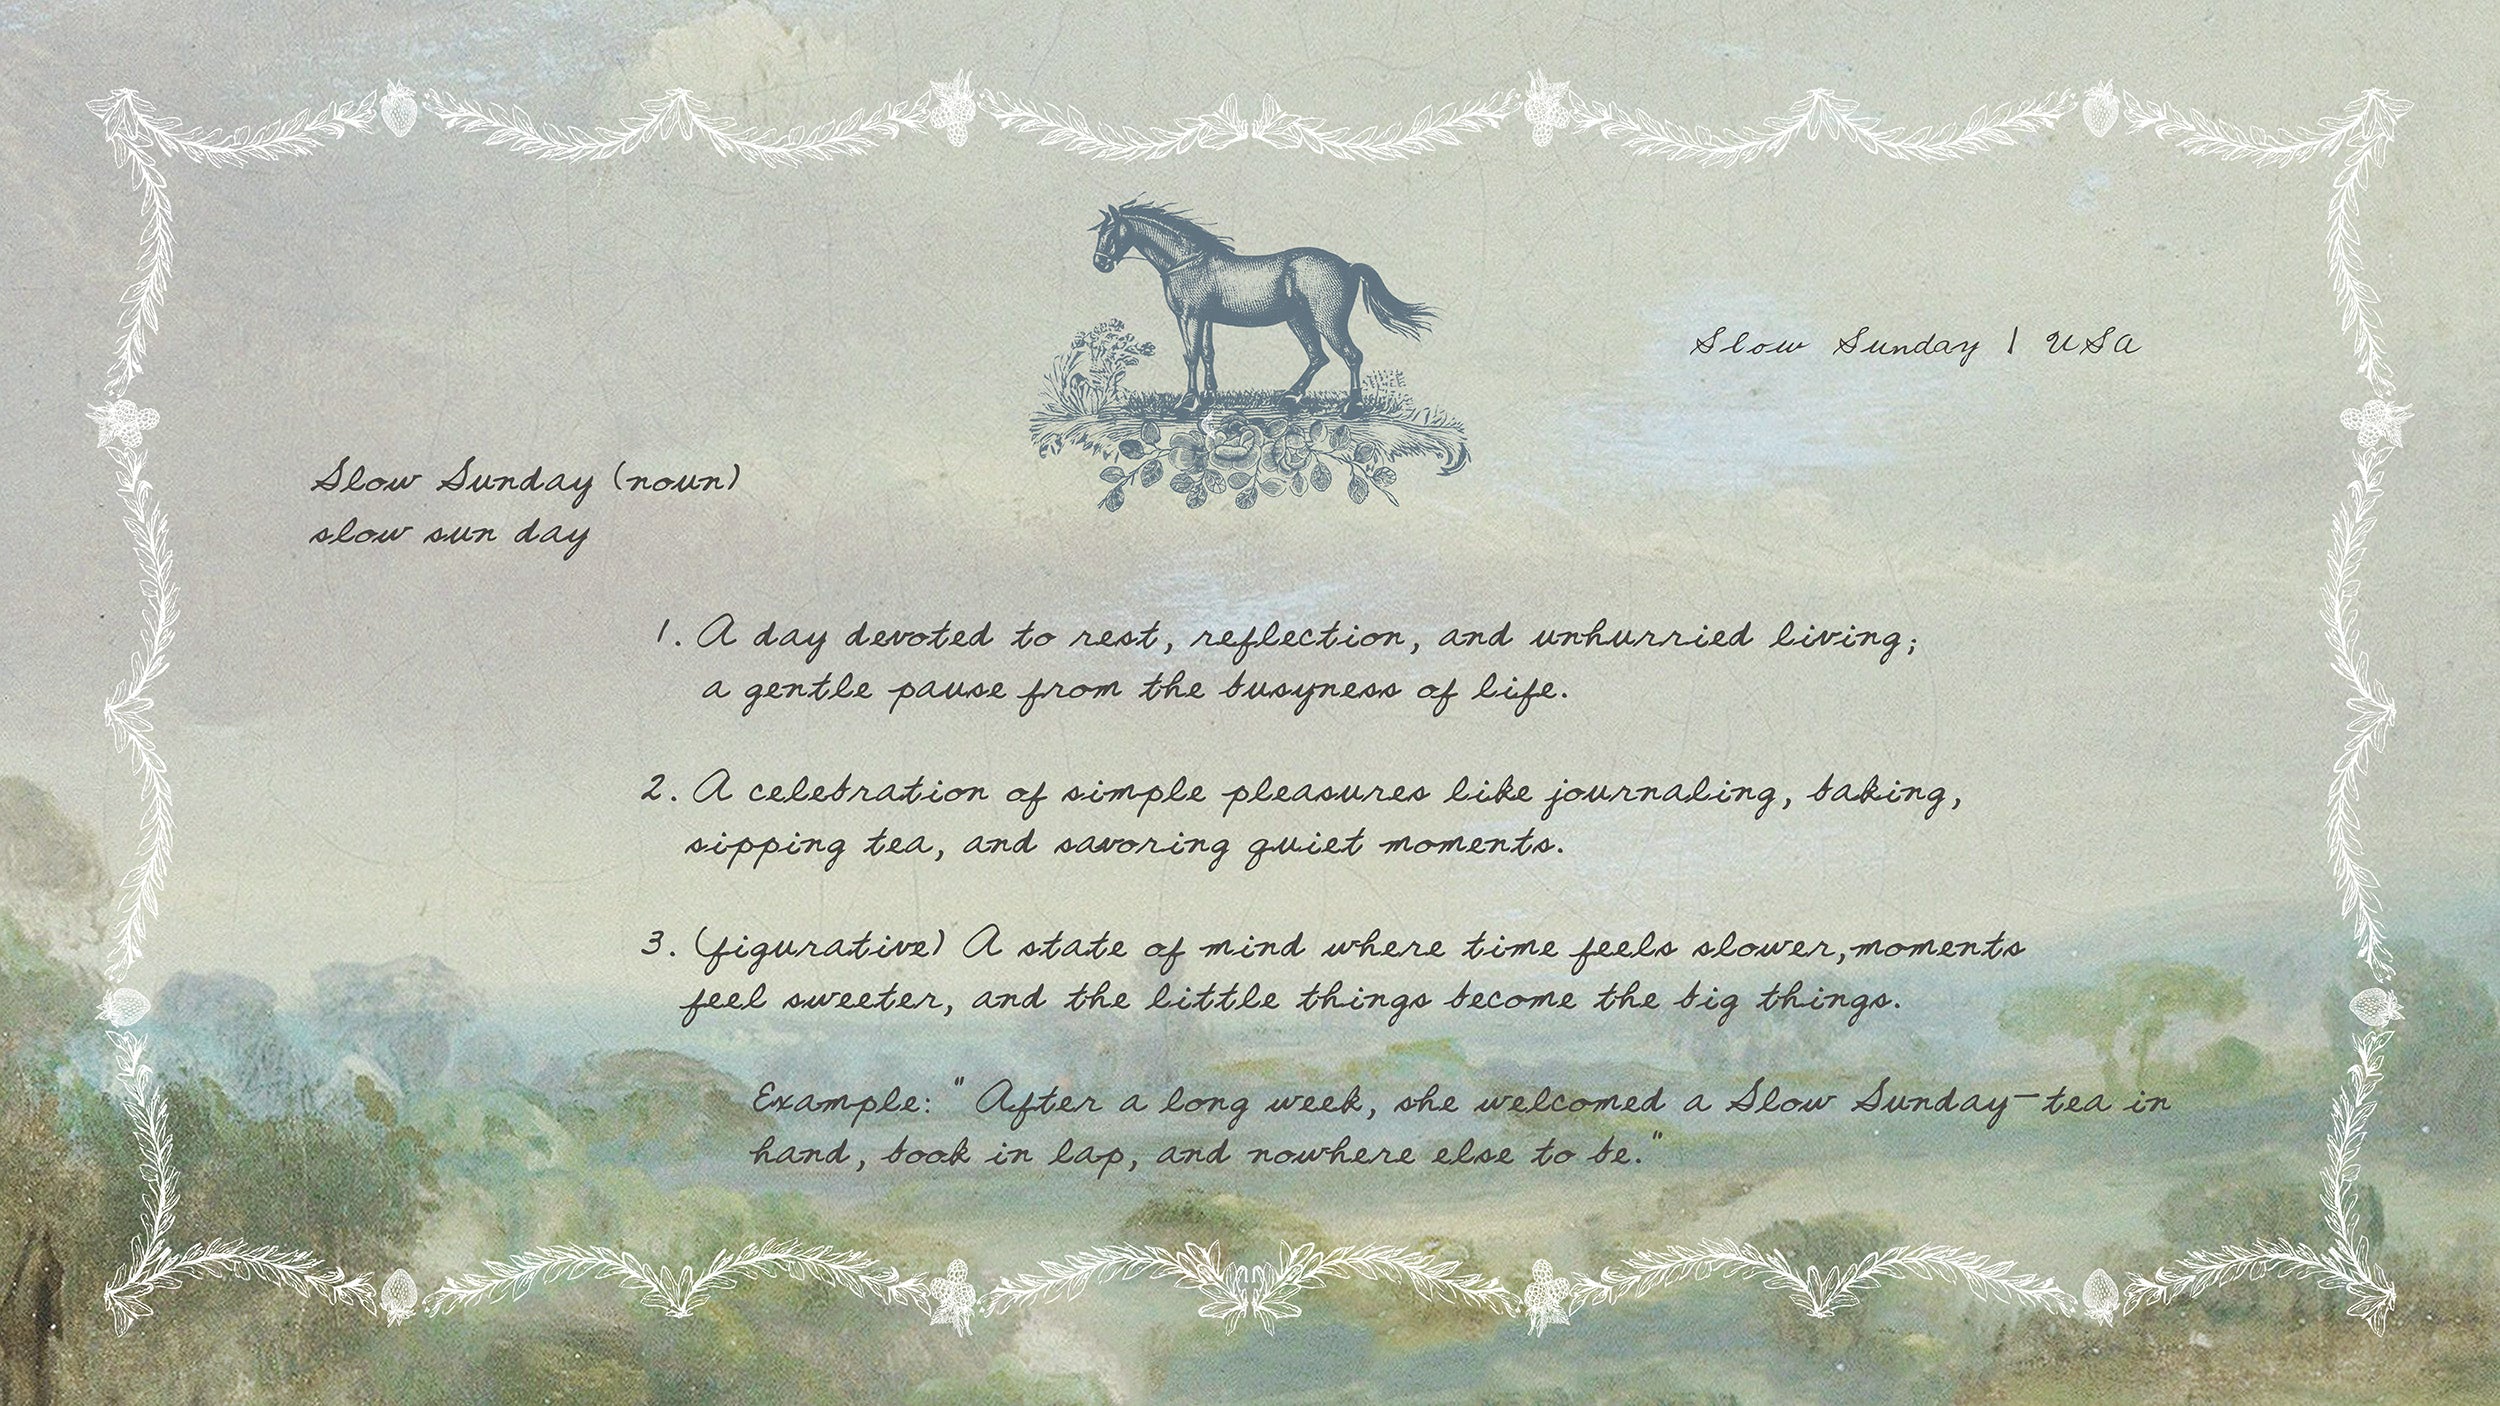 Slow Sunday | USA
Slow Sunday (noun)
slow sun day
1. A day devoted to rest, reflection, and unhurried living;
a gentle pause from the busyness of life.
2. A celebration of simple pleasures like journaling, baking,
sipping tea, and savoring quiet moments.
3. (figurative) A state of mind where time feels slower,moments
feel sweeter, and the little things become the big things.
Example: " After a long week, she welcomed a Slow Sunday—tea in
hand, book in lap, and nowhere else to be."